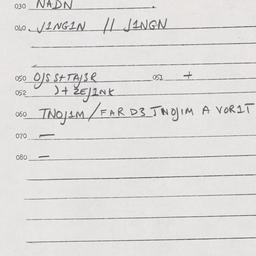 030 NADN
040. J1NG1N // J1NGN
050 OJS S+TAJ3R 051 +
052 )+ ZEJ1NK
060 TNOJ1M / FAR D3 TNOJIM A VOR1T
070 —
080 —